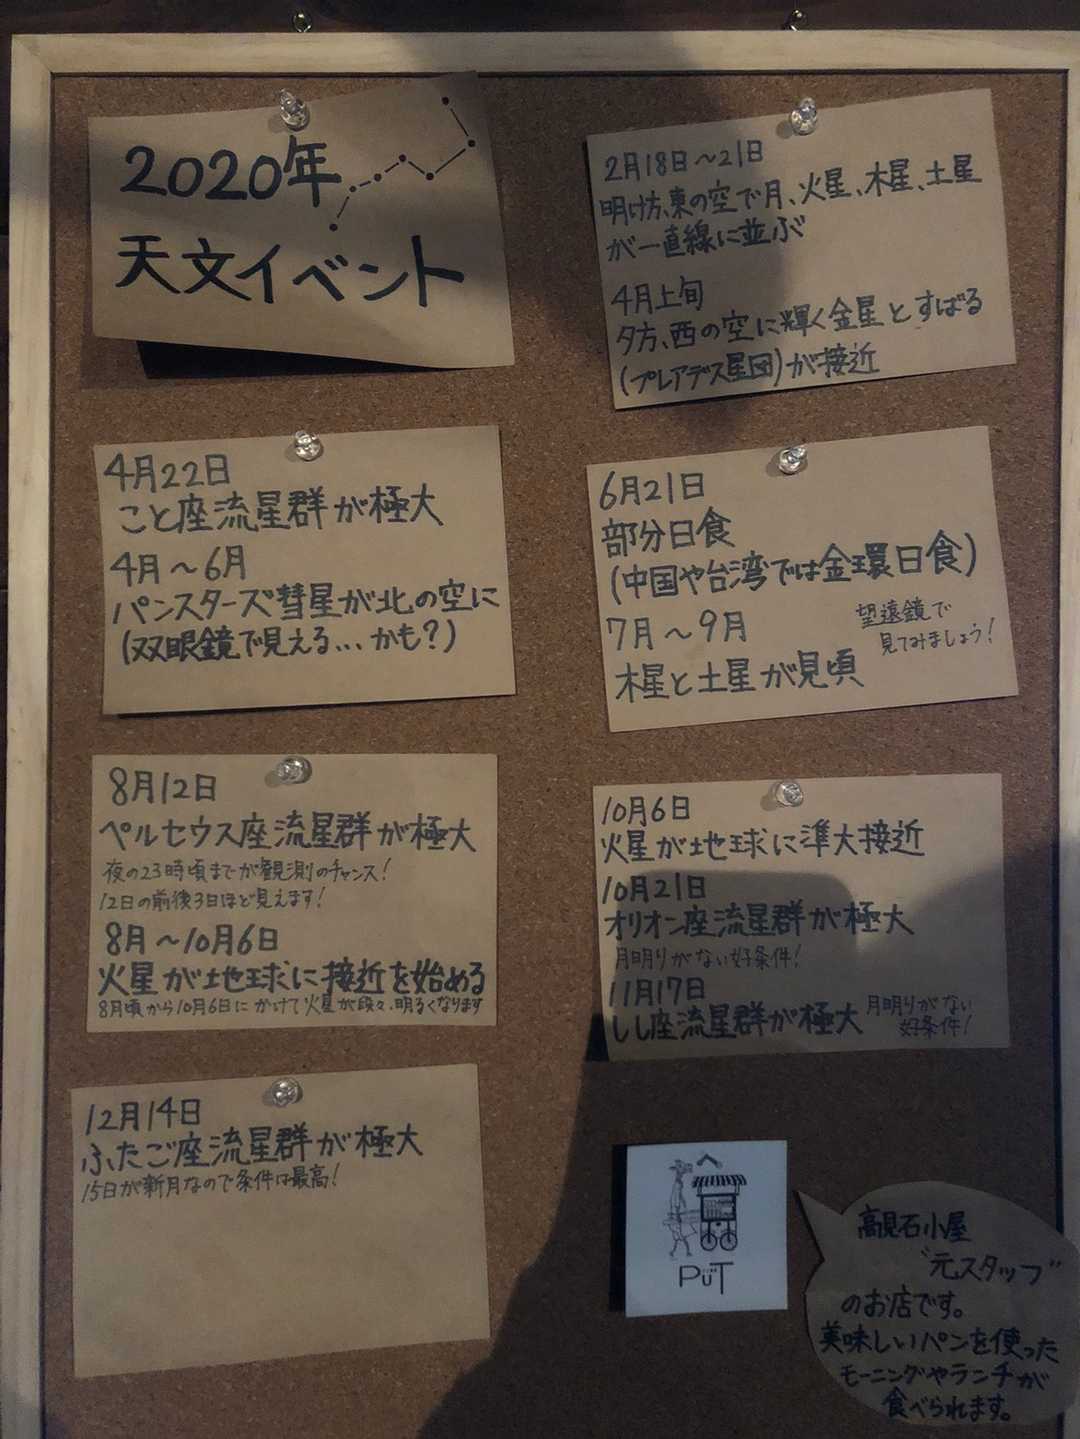 2020年
天文イベント
2月18日～21日
明け方、東の空で月、火星、木星、土星
が一直線に並ぶ
4月上旬
夕方、西の空に輝く金星とすばる
(プレアデス星団)が接近
4月22日
こと座流星群が極大
4月～6月
パンスターズ彗星が北の空に
(双眼鏡で見える…かも?)
6月21日
部分日食
(中国や台湾では金環日食)
7月～9月
木星と土星が見頃
望遠鏡で
見てみましょう!
8月12日
ペルセウス座流星群が極大
夜の23時頃までが観測のチャンス!
12日の前後3日ほど見えます!
8月～10月6日
火星が地球に接近を始める
8月頃から10月6日にかけて火星が段々、明るくなります
10月6日
火星が地球に準大接近
10月21日
オリオン座流星群が極大
月明りがない好条件!
11月17日
しし座流星群が極大
月明りがない
好条件!
12月14日
ふたご座流星群が極大
15日が新月なので条件は最高!
PÜT
高見石小屋
"元スタッフ"
のお店です。
美味しいパンを使った
モーニングやランチが
食べられます。